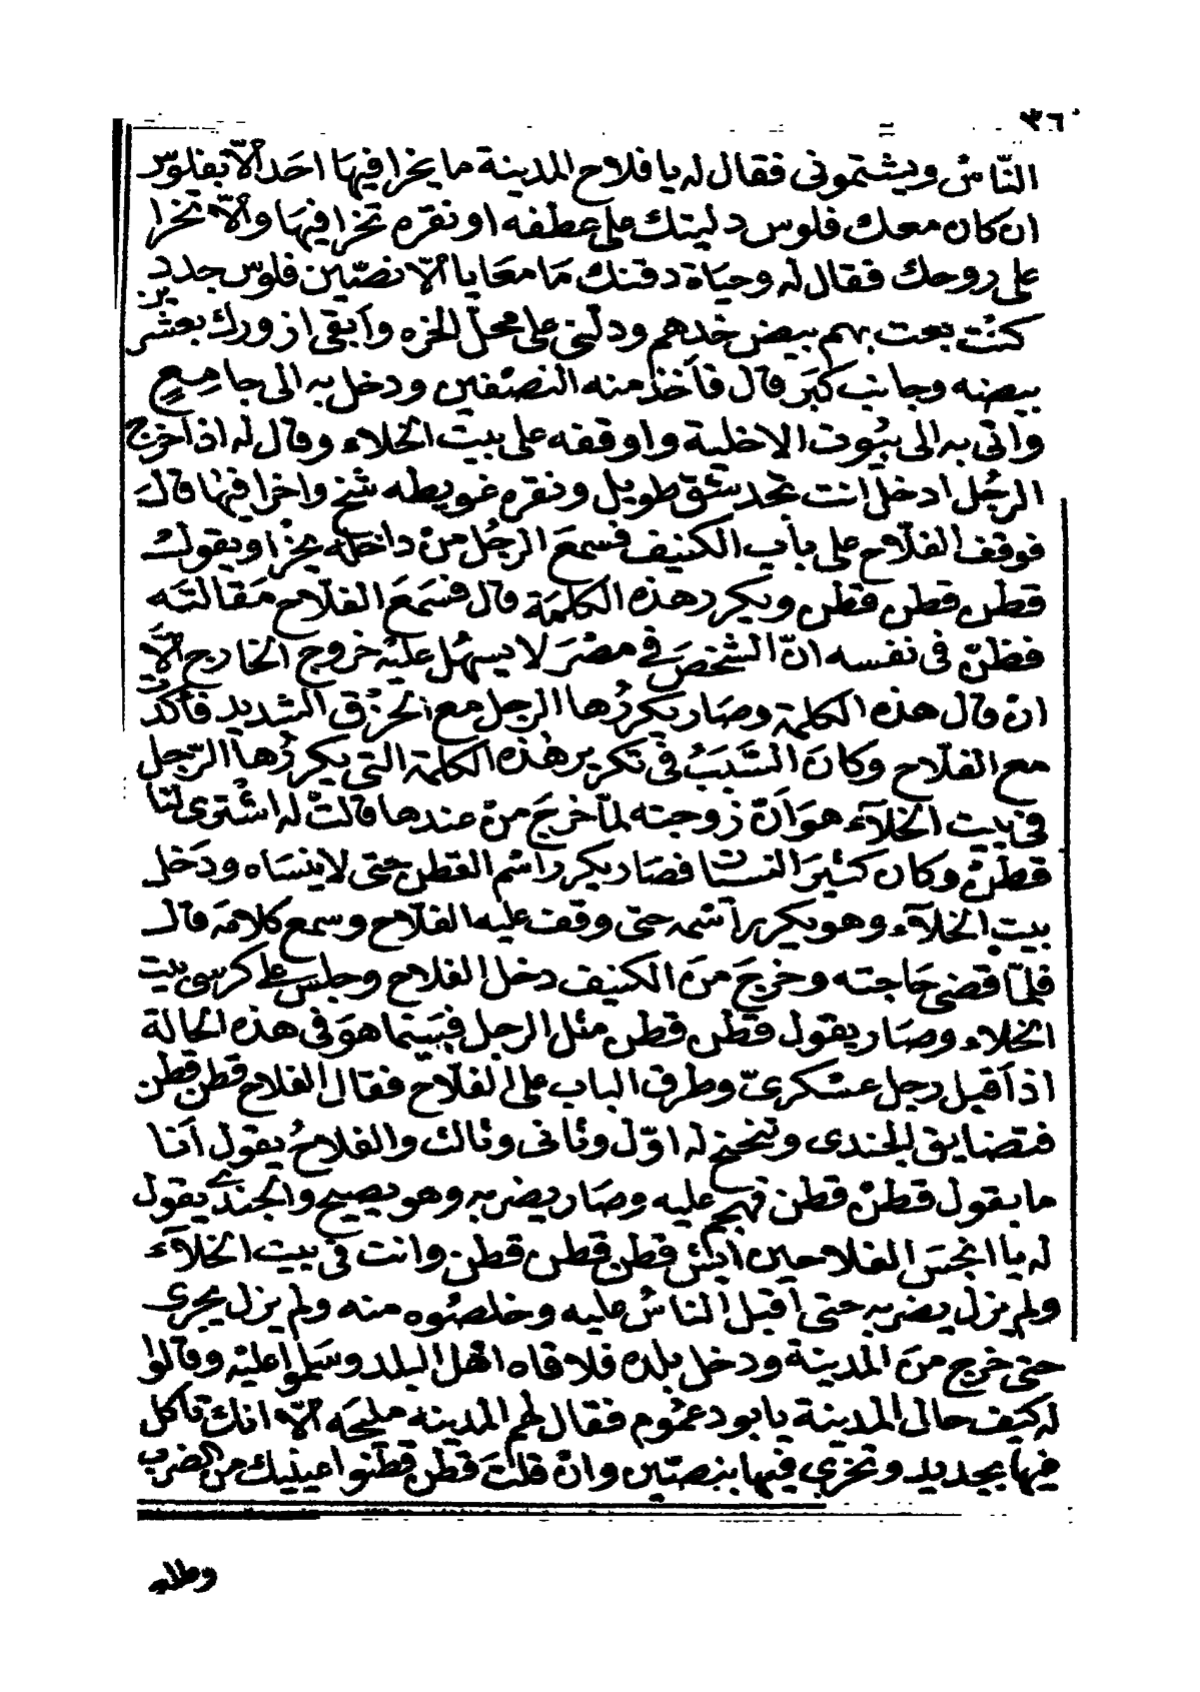 ٣٦
الناسُ ويشتموني فقال له يا فلاح المدينة ما يخرا فيها احَد الّا بفلوس
ان كان معك فلوس دليتك على عطفه او نقره تخرا فيها والّا تخرا
على روحك فقال له وحياة دقنك مَا معَايا الّا نصّين فلوس جدد
كنت بعت بهم بيض خدهم ودلّني على محلّ الخره وأبقى ازورك بعشر ين
بيضه وجانب كبَر قال فأخذ منه النصّفين ودخل به الى جامِعٍ
واتى به الى بيُوت الاخلية واوقفه على بيت الخلاء وقال له اذا خرج
الرجُل ادخل انت تجد شق طويل ونقره غويطه شخ واخرا فيها قال
فوقف الفلّاح على باب الكنيف فسمعَ الرجُل منْ داخله يحزا ويقول
قطن قطن قطن ويكرر هذه الكلمَة قال فسَمَعَ الفلّاح مَقالتَه
فظنّ في نفسه انّ الشخصَ في مصْرَ لا يسهُل عليْه خروج الخارج الّا
انْ قال هذه الكلمة وصَار يكررُها الرجل مع الحزْق الشديد فأكّدت
مع الفلّاح وكانَ السَّبَبُ في تكرير هٰذه الكلمة التي يكررُها الرّجل
في بيت الخلآء هوَ اَنّ زوجته لمّا خرجَ منْ عندها قالتْ له اشْترى لنا
قطنْ وكان كثيرَ النسيان فصَار يكرر اسْم القطن حتى لا ينسَاه ودَخل
بيت الخلآء وهو يكرر اسمه حتى وقف عليه الفلّاح وسمع كلامَه قال
فلمّا قضى حَاجته وخرجَ منَ الكنيف دخل الفلاح وجلس على كرسي بيت
الخلاء وصَار يقول قطن قطن مثل الرجل فبينما هوَ في هذه الحالة
اذ اَقبل رجل عسْكرىّ وطرق الباب على الفلّاح فقال الفلاح قطن قطن
فتضايق الجندى وتنحنح له اوّل وثانى وثالث والفلاحُ يقول أنا
ما بقول قطنْ قطن فهجم عليه وصَار يضربه وهو يصيح والجندي يقول
له يا انجسَ الفلاحين اَيش قطن قطن قطن وانت في بيت الخلآء
ولم يزل يضربه حتى اَقبل الناسُ عليه وخلصُوه منه ولم يزل يجرى
حتى خرج منَ المدينة ودخل بلده فلاقاه اهْل البلد وسَلّموا عليْه وقالوا
له كيف حال المدينة يا بو دعمُوم فقال لهم المدينه مليحَه الّا انك تأكل
فيها بجديد وتخرى فيها بنصّين وانْ قلتَ قطن قطّنوا عينيك من الضرب
وطله